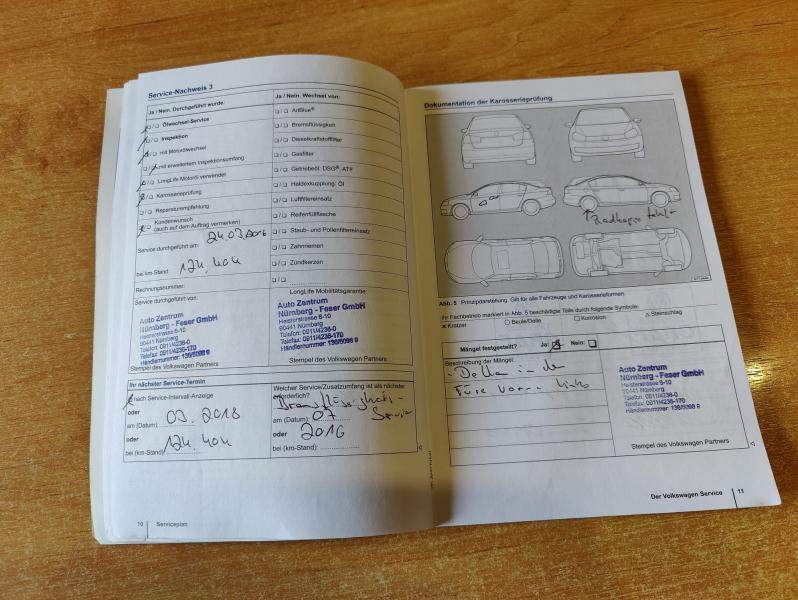 Service-Nachweis 3
Ja / Nein. Durchgeführt wurde:
Ölwechsel-Service
Inspektion
mit Motorölwechsel
mit erweitertem Inspektionsumfang
LongLife Motoröl verwendet
Karosserieprüfung
Reparaturempfehlung
Kundenwunsch
(auch auf dem Auftrag vermerken)
Service durchgeführt am: 24.03.2016
bei km-Stand: 124.404
Rechnungsnummer:
Service durchgeführt von:
Auto Zentrum
Nürnberg - Feser GmbH
Heisterstrasse 6-10
90441 Nürnberg
Telefon: 0911/4236-0
Telefax: 0911/4236-170
Händlernummer: 136/5098 9
Stempel des Volkswagen Partners
Ja / Nein. Wechsel von:
AdBlue®
Bremsflüssigkeit
Dieselkraftstofffilter
Gasfilter
Getriebeöl DSG®, ATF
Haldexkupplung: Öl
Luftfiltereinsatz
Reifenfüllflasche
Staub- und Pollenfiltereinsatz
Zahnriemen
Zündkerzen
LongLife Mobilitätsgarantie:
Auto Zentrum
Nürnberg - Feser GmbH
Heisterstrasse 6-10
90441 Nürnberg
Telefon: 0911/4236-0
Telefax: 0911/4236-170
Händlernummer: 136/5098 9
Stempel des Volkswagen Partners
Ihr nächster Service-Termin
nach Service-Intervall-Anzeige
oder
am (Datum): 03.2018
oder
bei (km-Stand): 124.404
Welcher Service/Zusatzumfang ist als nächster
erforderlich?
Bremsflüssigkeits-
Service
am (Datum): 07
oder 2016
bei (km-Stand):
10 Serviceplan
Dokumentation der Karosserieprüfung
Radkappe fehlt
Abb. 5 Prinzipdarstellung. Gilt für alle Fahrzeuge und Karosserieformen.
Ihr Fachbetrieb markiert in Abb. 5 beschädigte Teile durch folgende Symbole:
Kratzer
Beule/Delle
Korrosion
Steinschlag
Mängel festgestellt? Ja: Nein:
Beschreibung der Mängel:
- Delle in de
Türe vorne links
Auto Zentrum
Nürnberg - Feser GmbH
Heisterstrasse 6-10
90441 Nürnberg
Telefon: 0911/4236-0
Telefax: 0911/4236-170
Händlernummer: 136/5098 9
Stempel des Volkswagen Partners
Der Volkswagen Service 11